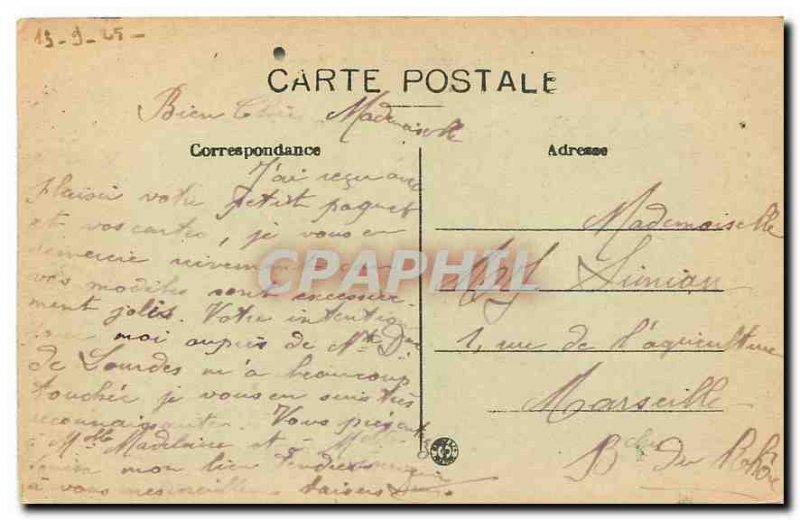 13-9-25-
CARTE POSTALE
Bien Chère Mademoiselle
Correspondance
Adresse
J'ai reçu avec
plaisir votre petit paquet
et vos cartes, je vous en
remercie vivement
vos modèles sont excessive-
ment jolis. Votre intention
pour moi auprès de N.tre Dame
de Lourdes m'a beaucoup
touchée je vous en suis très
reconnaissante. Vous présente
à Mlle Madeleine et à
mon bien
à vous baisers
Mademoiselle
Simian
1, rue de l'agriculture
Marseille
Bches du Rhône
CPAPHIL.COM